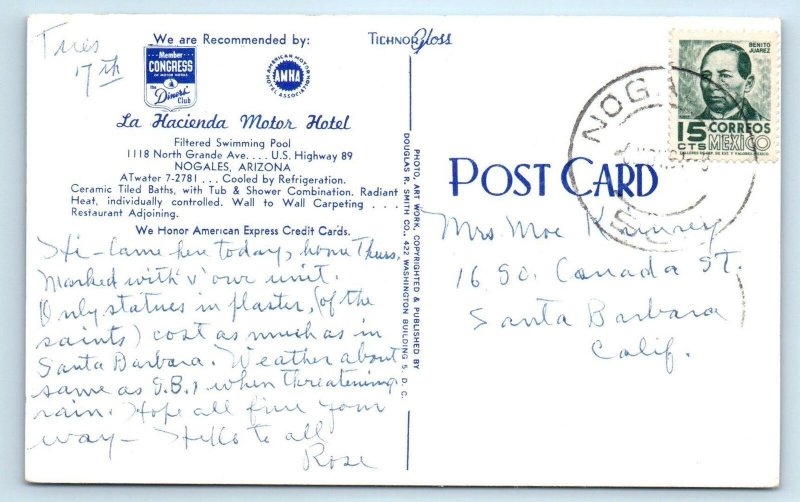 Tues
17th
We are Recommended by:
Member
CONGRESS
OF MOTOR HOTELS
the Diners' Club
AMERICAN MOTOR HOTEL ASSOCIATION
AMHA
La Hacienda Motor Hotel
Filtered Swimming Pool
1118 North Grande Ave. . . . U.S. Highway 89
NOGALES, ARIZONA
ATwater 7-2781 . . . Cooled by Refrigeration.
Ceramic Tiled Baths, with Tub & Shower Combination. Radiant
Heat, individually controlled. Wall to Wall Carpeting . . .
Restaurant Adjoining.
We Honor American Express Credit Cards.
Hi - Came here today, home Thurs,
Marked with 'v' our unit.
Only statues in plaster, (of the
saints) cost as much as in
Santa Barbara. Weather about
same as S.B., when threatening
rain. Hope all fine your
way - Hello to all
Rose
TICHNOR Gloss
PHOTO, ART WORK, COPYRIGHTED & PUBLISHED BY
DOUGLAS R. SMITH CO., 422 WASHINGTON BUILDING 5, D. C.
POST CARD
BENITO
JUAREZ
15
CTS
CORREOS
MEXICO
NOG
Mrs. Moe
16 So. Canada St.
Santa Barbara
Calif.